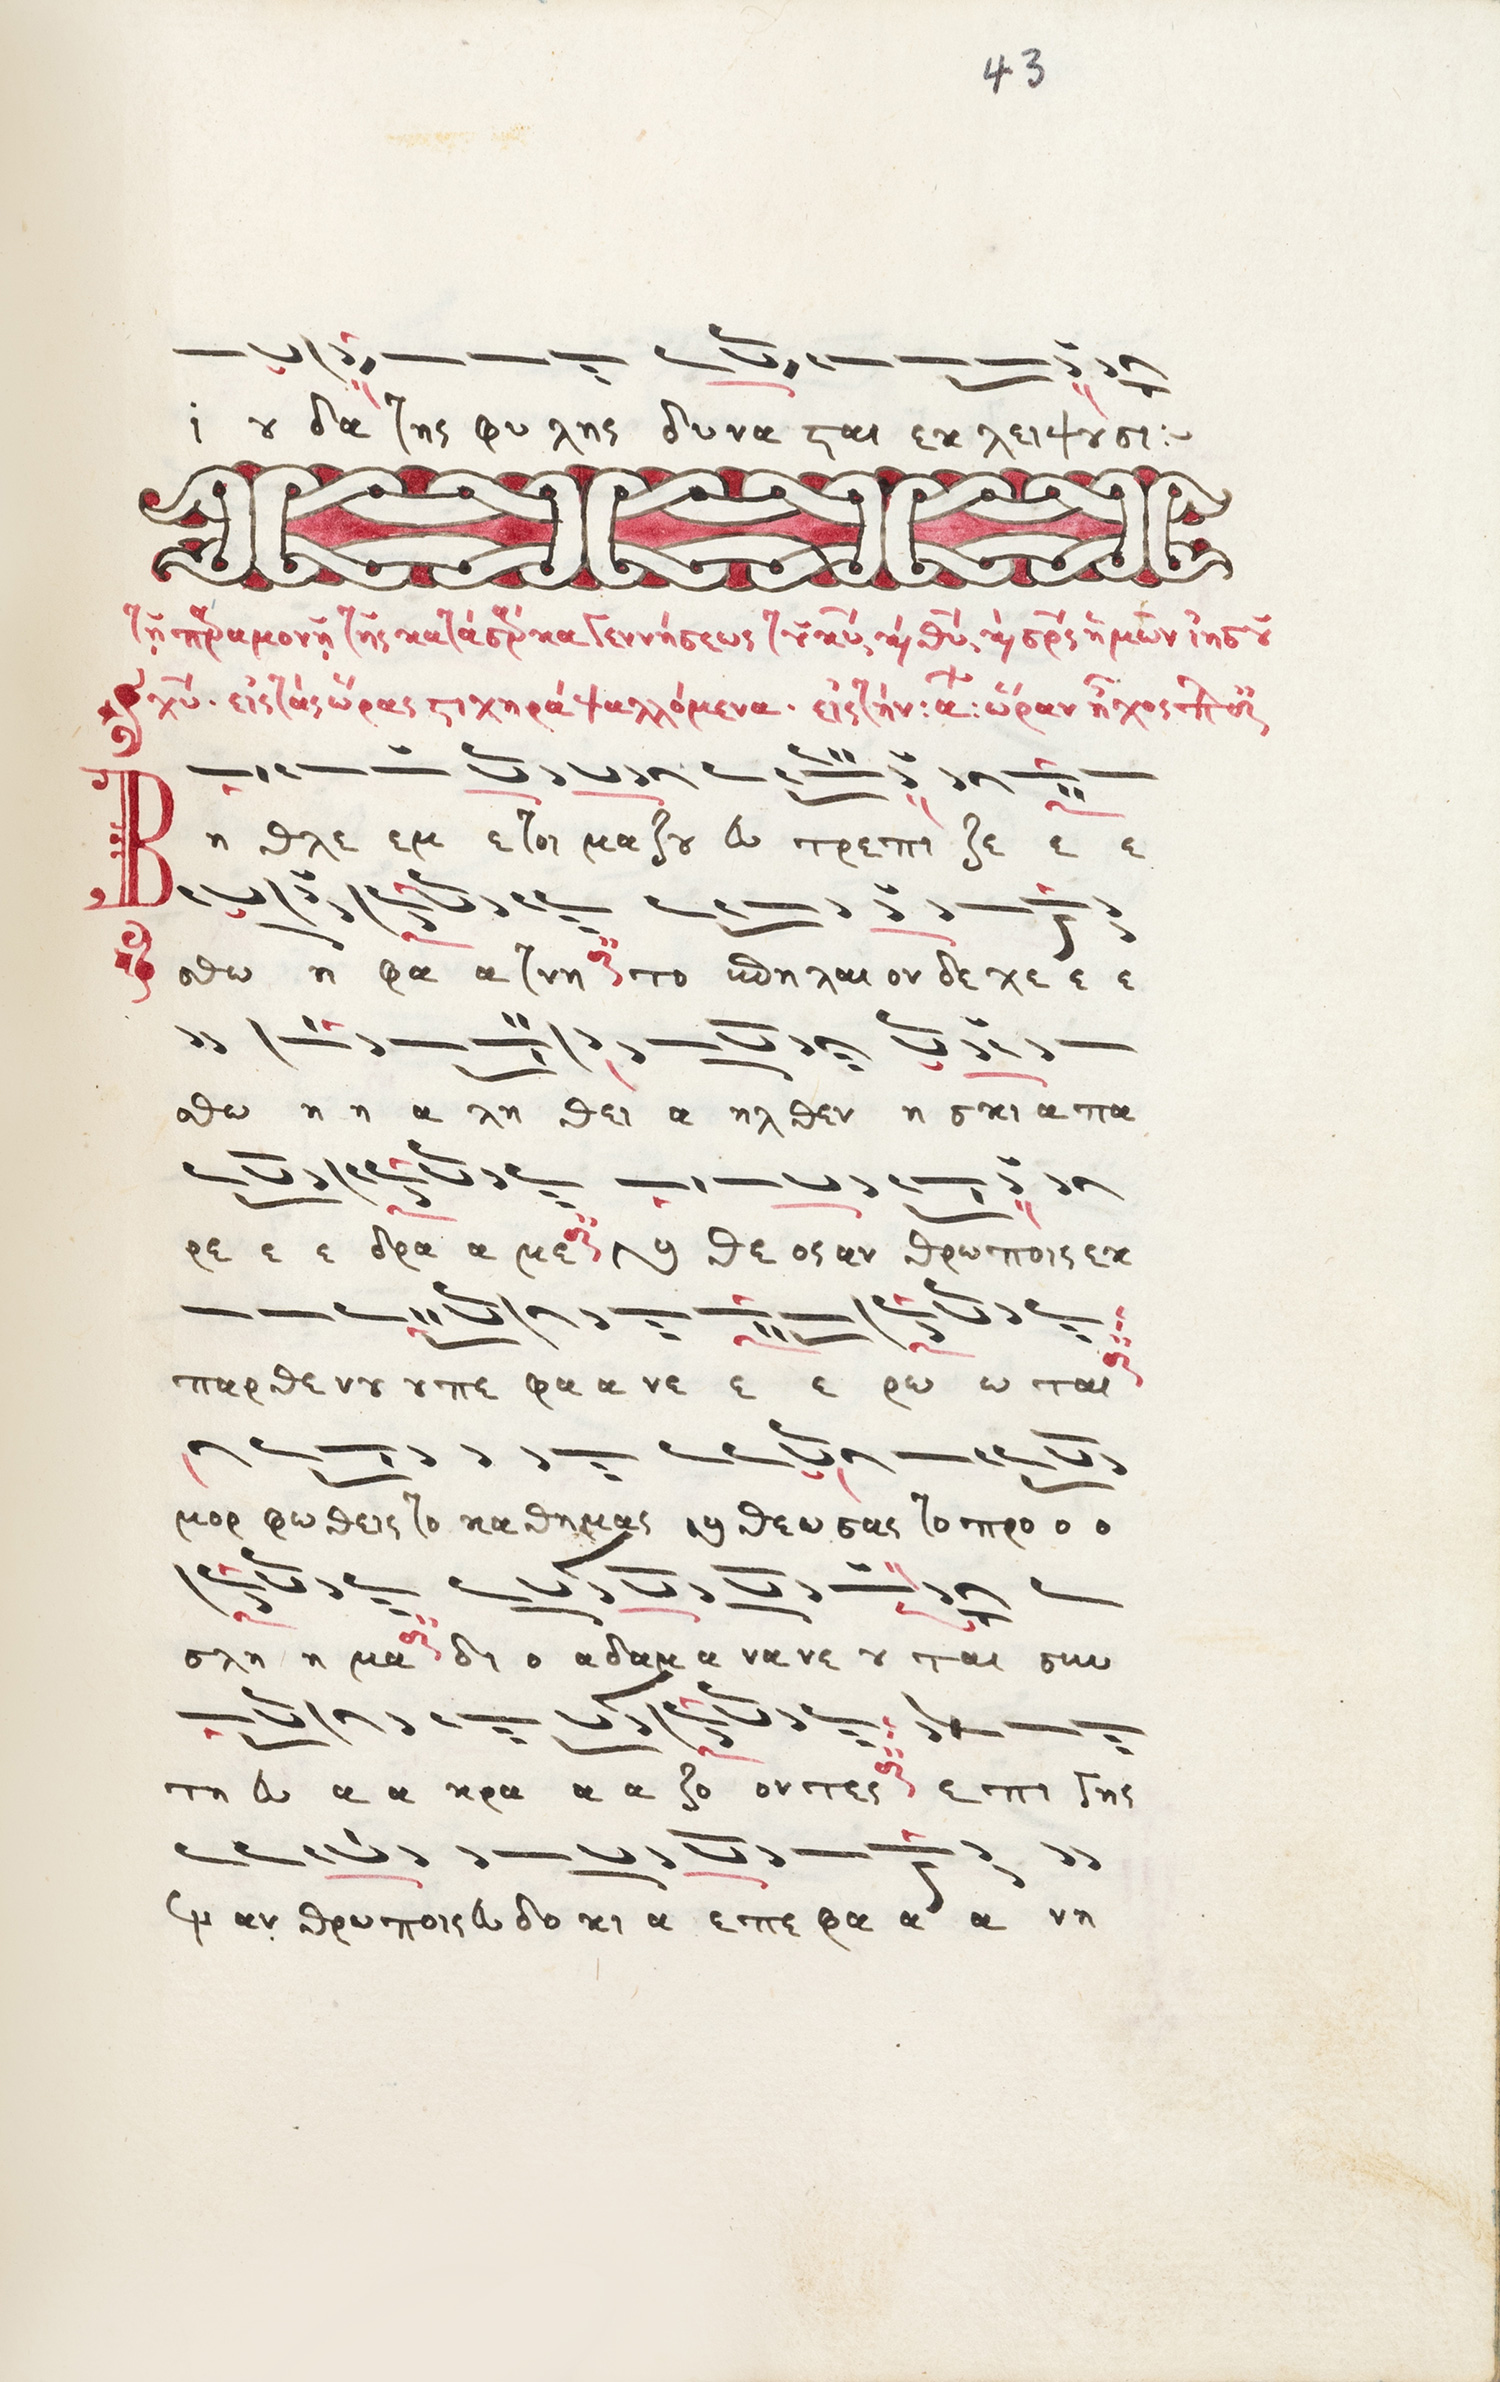 43
ι ȣ δα της φυ λης δυνα ται εκ λειψȣσι:
τῇ πρ̅αμονῇ τῆς κατὰ σάρκα γεννήσεως τȣ̃ κυ̅, κὴ θυ̅, κὴ σρ̅ς ἡμῶν ἰησȣ̃
χυ̅· εἰς τὰς ὥρας στιχηρὰ ψαλλόμενα· εἰς τὴν: α: ὥραν ἦχος πλ
Β η θλε εμ ετοι μαζȣ ευ τρεπι ζε ε ε
σθω η φα α τνη το σπηλαι ον δε χε ε ε
σθω η η α λη θει α ηλθεν η σκι α πα
ρε ε ε δρα α με κ θε ος αν θρωποις εκ
παρθενȣ ȣ πε φα α νε ε ε ρω ω ται
μορ φω θεις το καθημας κ θεω σας το προ ο ο
σλη η μα δι ο αδαμ α νανε ȣ ται συν
τη ευ α α κρα α α ζο οντες ε πι γης
εν αν θρωποις ευδο κι α επε φα α α νη